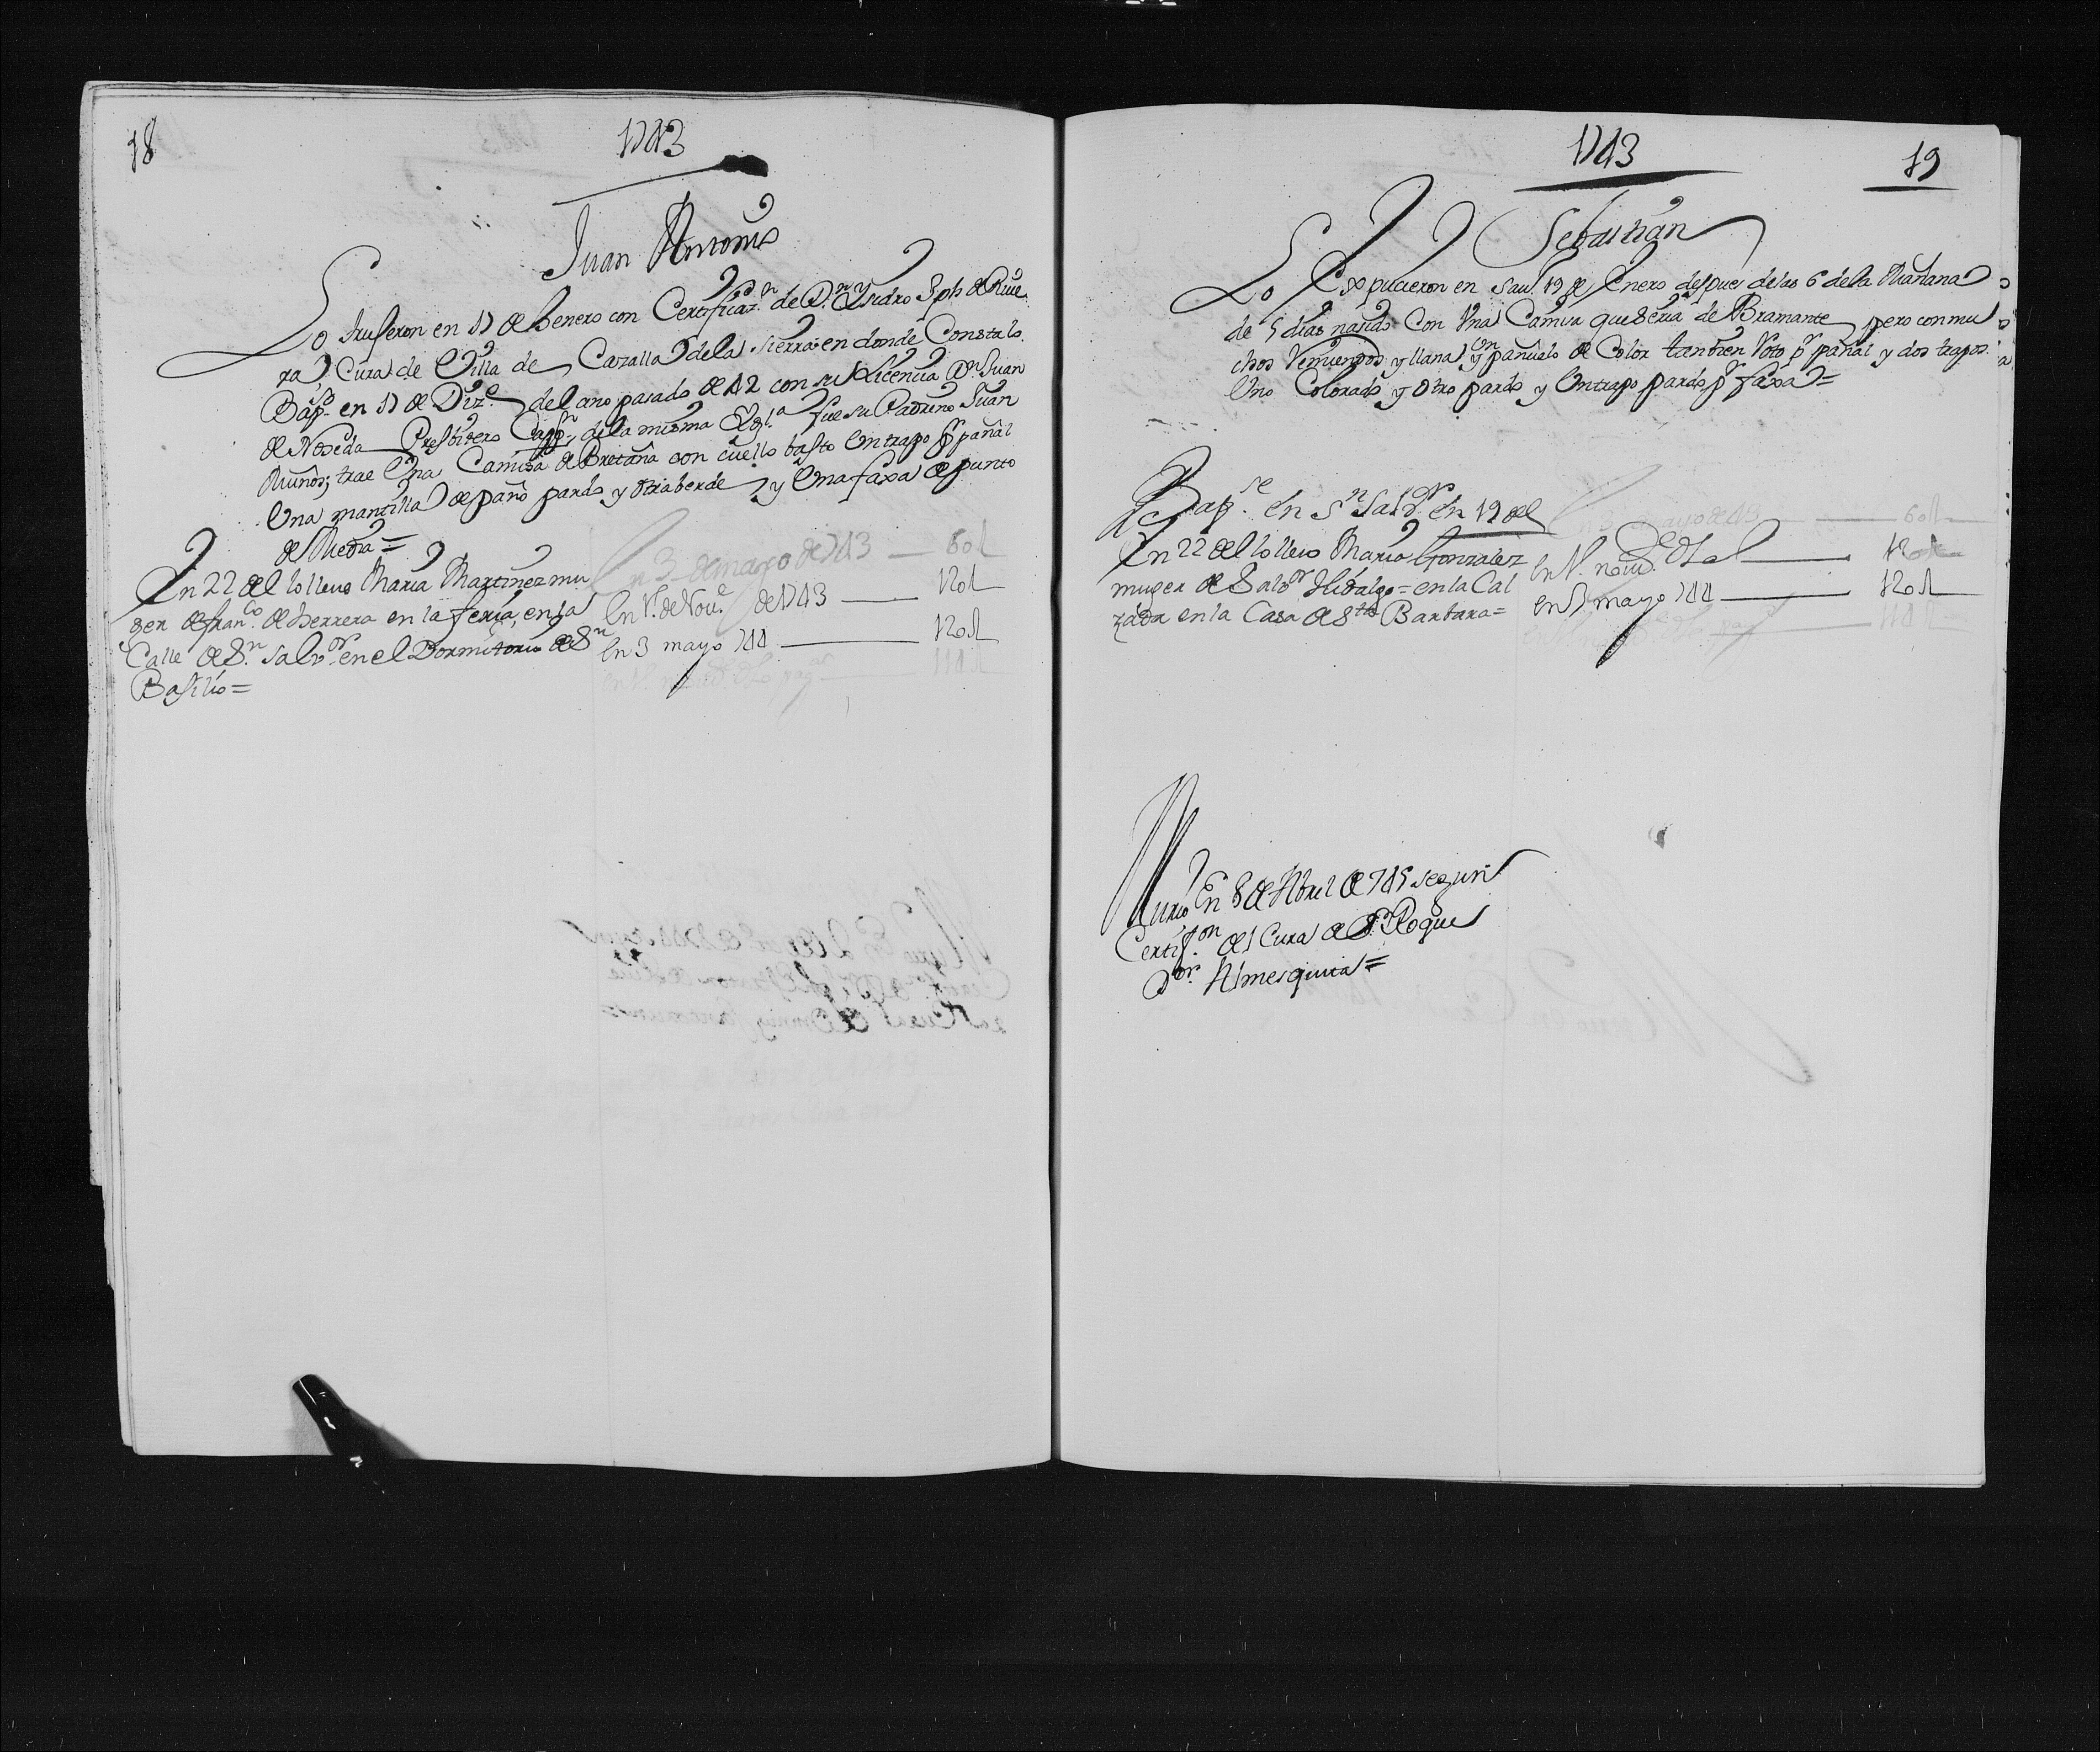 18
1743
Juan Antonio
Lo truferon en 17 de henero con Certificaz.n de D.n Ysidro Jph de Rive
ra Cura de Villa de Cazalla de la Sierra en donde Consta lo
Bap.o en 17 de Diz.e del ano pasado de 42 con su Licencia D.n Juan
de Noseda Presbitero Capp.n de la misma Ygl.a fue su Padrino Juan
Muños; trae Una Camisa de Bretaña con cuello basto Un trapo p.r pañal
Una mantilla de paño pardo y otra berde y Una faxa de punto
de Media =
En 22 del lo llevo Maria Martinez mu
ger de fran.co de Herrera en la feria, en la
Calle de S.n Salv.or en el Dormitorio de S.n
Basilio =
En 3 de mayo de 743 — 60 rl
En 1.o de Nov.e de 1743 — 120 rl
en 3 mayo 744 — 120 rl
1743
19
Sebastian
Lo Expucieron en Sav. 19 de Enero despues de las 6 de la Mañana
de 5 dias nasido Con Una Camisa que seria de Bramante pero con mu
chos Remiendos y llana Un pañuelo de Color tanbien Roto p.r pañal y dos trapos
Uno Colorado y otro pardo y Un trapo pardo p.r faxa =
Bap.se en S.n Salv.or en 19 del
En 22 del lo llevo Maria Gonzalez
muger de Salv.or Hidalgo = en la Cal
zada en la Casa de S.ta Barbara =
mayo de 43 — 60 rl
en 1.o nov.e — 120 rl
en 5 mayo 744 — 120 rl
Murio En 8 de Abril de 745 segun
Certif.on del Cura de S.n Roque
D.or Almesquita =